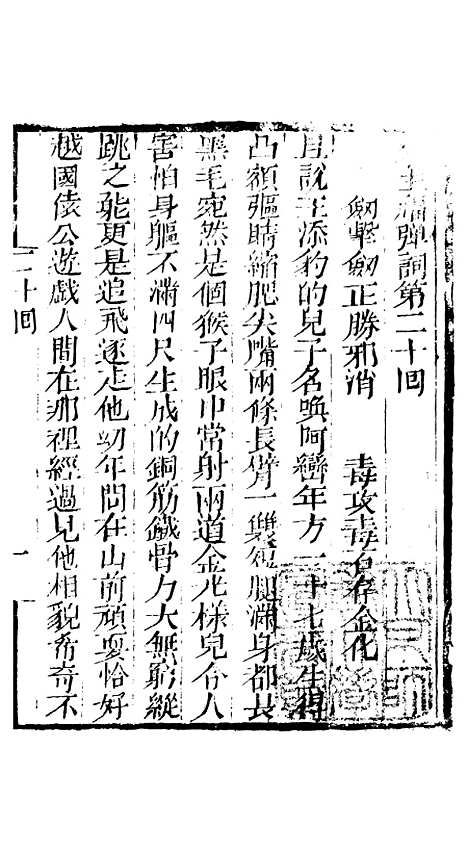 彈詞第二十回
劍擊劍正勝邪消 毒攻毒石存金化
且說王添豹的兒子名喚阿巒年方一十七歲生得
凸額摳睛縮腮尖嘴兩條長臂一雙短腿滿身都長
黑毛宛然是個猴子眼巾常射兩道金光樣兒合人
害怕身軀不滿四尺生成的銅筋鐵骨力大無窮縱
跳之能更是追飛逐走他幼年間在山前頑耍恰好
越國猿公遊戲人間在那裡經過見他相貌希奇不
二十回
一